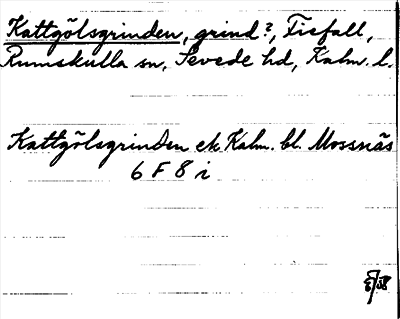 Kattgölsgrinden, grind?, Fisfall,
Rumskulla sn, Sevede hd, Kalm. l.
Kattgölsgrinden ek. Kalm. bl. Mossnäs
6 F 8 i